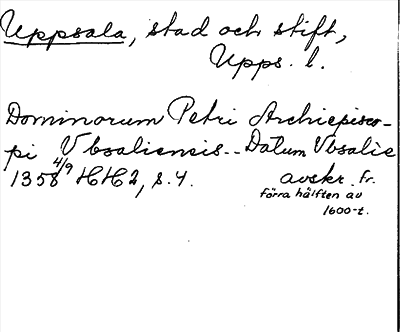 Uppsala, stad och stift,
Upps. l.
Dominorum Petri Archiepisco-
pi Vbsaliensis.. Datum Vbsalie
1358 4/9 HH2, s. 4.
avskr. fr.
förra hälften av
1600-t.